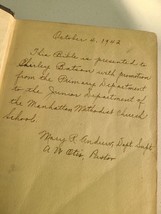 October 4, 1942
This Bible is presented to
Shirley Batson with promotion
from the Primary Department
to the Junior Department of
the Manhattan Methodist Church
School.
Mary R. Andrews, Dept. Supt.
A. W. Otis Pastor